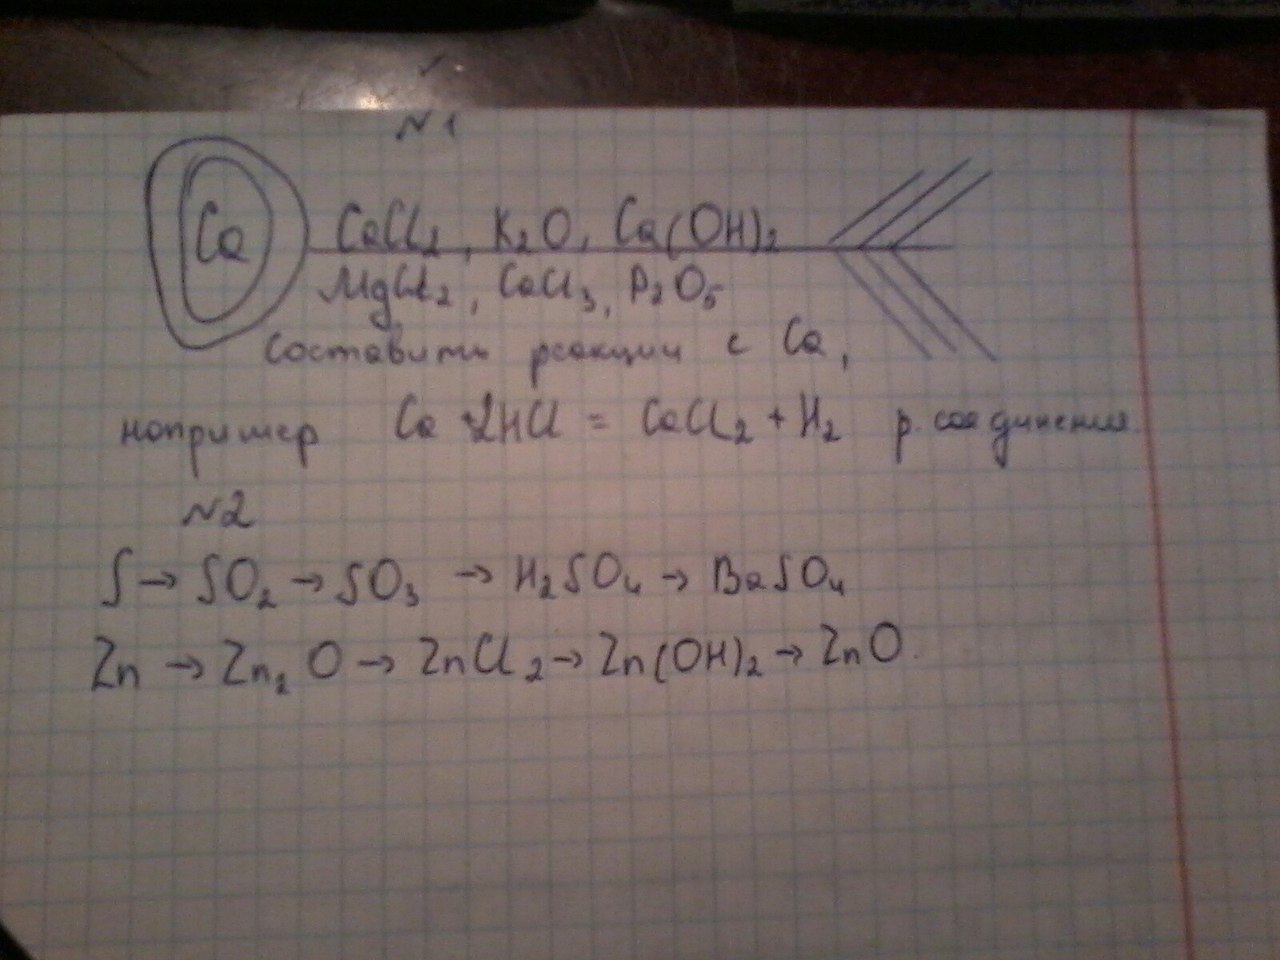 N1
Ca CaCl₂, K₂O, Ca(OH)₂
MgCl₂, CaCl₃, P₂O₅
Составить реакции с Ca,
например Ca + 2HCl = CaCl₂ + H₂ р. соединения.
N2
S → SO₂ → SO₃ → H₂SO₄ → BaSO₄
Zn → Zn₂O → ZnCl₂ → Zn(OH)₂ → ZnO.